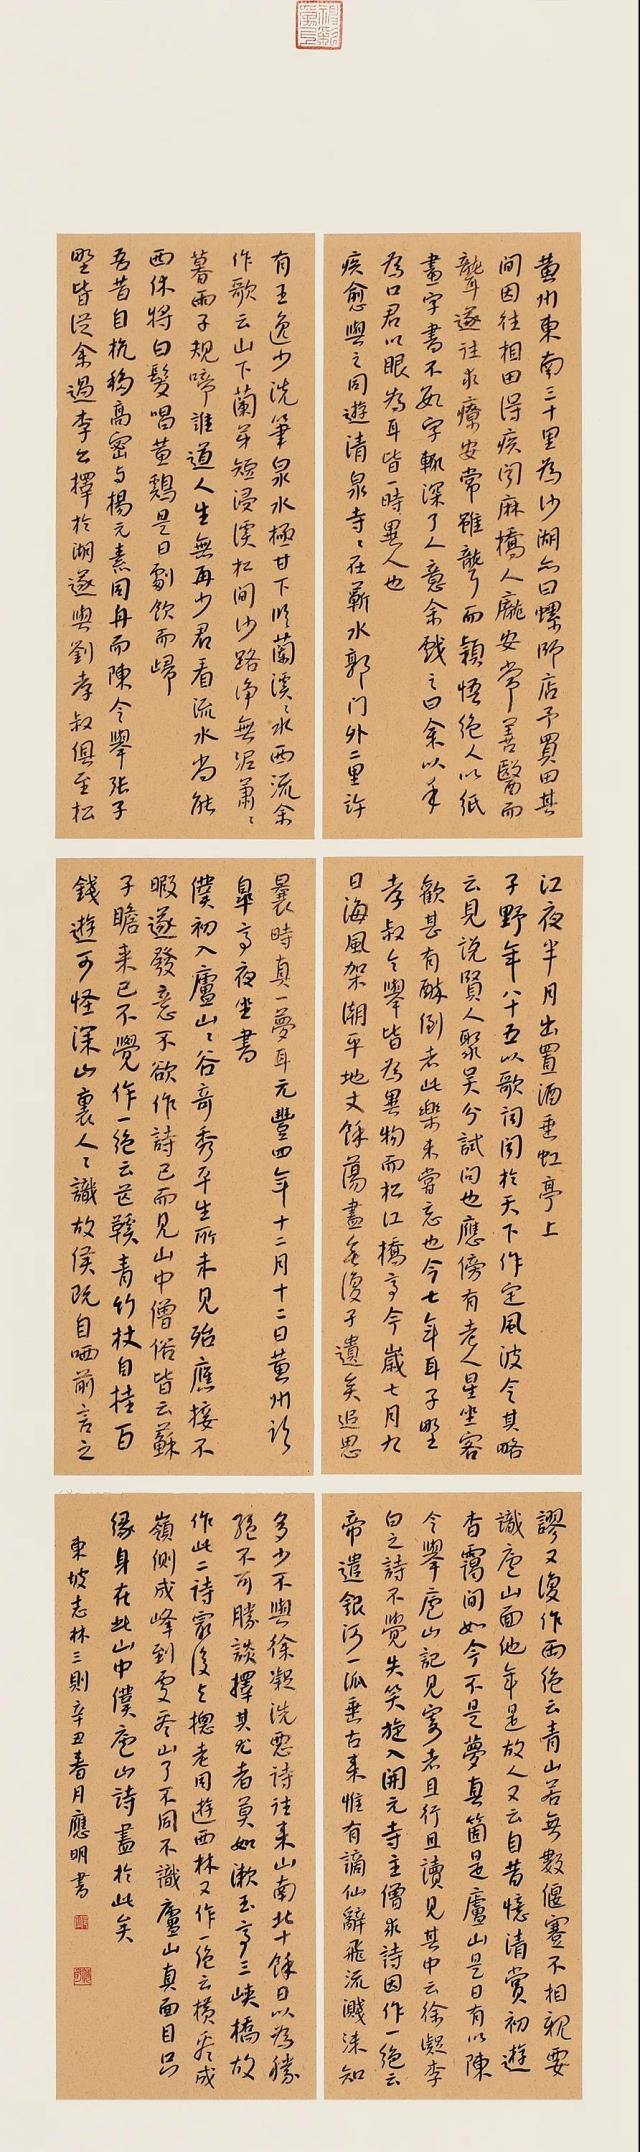 黄州東南三十里為沙湖亦曰螺師店予買田其
間因往相田得疾聞麻橋人龐安常善醫而
聾遂往求療安常雖聾而穎悟絕人以紙
畫字書不數字輒深了人意余戲之曰余以手
為口君以眼為耳皆一時異人也
疾愈與之同遊清泉寺〻在蘄水郭门外二里許
有王逸少洗筆泉水極甘下臨蘭溪〻水西流余
作歌云山下蘭芽短浸溪松間沙路净無泥蕭〻
暮雨子規啼誰道人生無再少君看流水尚能
西休將白髮唱黄鷄是日劇飲而歸
吾昔自杭移高密与楊元素同舟而陳令舉張子
野皆從余過李公擇於湖遂與劉孝叔俱至松
江夜半月出置酒垂虹亭上
子野年八十五以歌詞聞於天下作定風波令其略
云見說賢人聚吳分試問也應傍有老人星坐客
歡甚有醉倒者此樂未嘗忘也今七年耳子野
孝叔令舉皆為異物而松江橋亭今歲七月九
日海風架潮平地丈餘蕩盡無復孑遺矣追思
曩時真一夢耳元豐四年十二月十二日黄州臨
皐亭夜坐書
僕初入廬山〻谷奇秀平生所未見殆應接不
暇遂發意不欲作詩已而見山中僧俗皆云蘇
子瞻来已不覺作一絕云芒鞵青竹杖自挂百
錢遊可怪深山裏人〻識故侯既自哂前言之
謬又復作兩絕云青山若無數偃蹇不相親要
識庐山面他年是故人又云自昔憶清賞初遊
杳靄間如今不是夢真箇是廬山是日有以陳
令舉庐山記見寄者且行且讀見其中云徐凝李
白之詩不覺失笑旋入開元寺主僧求詩因作一絕云
帝遣銀河一派垂古来惟有謫仙辭飛流濺沫知
多少不與徐凝洗惡詩往来山南北十餘日以為勝
絕不可勝談擇其尤者莫如漱玉亭三峡橋故
作此二詩最後与摠老同遊西林又作一絕云横看成
嶺側成峰到處看山了不同不識廬山真面目只
緣身在此山中僕庐山詩盡於此矣
東坡志林三則辛丑春月應明書